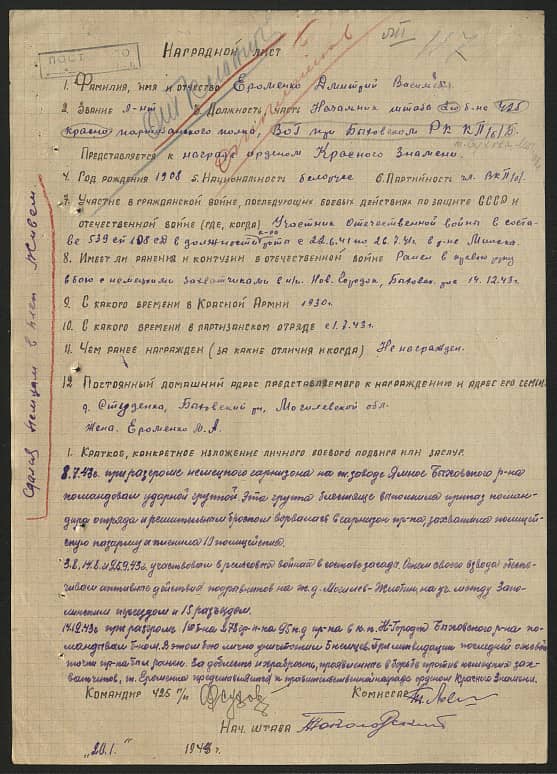 ПОСТ
НАГРАДНОЙ ЛИСТ
1. ФАМИЛИЯ, ИМЯ И ОТЧЕСТВО Еременко Дмитрий
2. ЗВАНИЕ л-нт 3. ДОЛЖНОСТЬ, ЧАСТЬ Начальник штаба б-на 425
партизанского полка, ВОГ при Быховском РК КП/б/Б.
ПРЕДСТАВЛЯЕТСЯ к награде орденом Красного Знамени.
4. ГОД РОЖДЕНИЯ 1908 5. НАЦИОНАЛЬНОСТЬ белорус 6. ПАРТИЙНОСТЬ чл. ВКП/б/.
7. УЧАСТИЕ В ГРАЖДАНСКОЙ ВОЙНЕ, ПОСЛЕДУЮЩИХ БОЕВЫХ ДЕЙСТВИЯХ ПО ЗАЩИТЕ СССР И
ОТЕЧЕСТВЕННОЙ ВОЙНЕ (ГДЕ, КОГДА) Участник Отечественной войны в соста-
ве 539 сп 108 сд в должности с 22.6.41 по 26.7.41 в р-не Минска.
8. ИМЕЕТ ЛИ РАНЕНИЯ И КОНТУЗИИ В ОТЕЧЕСТВЕННОЙ ВОЙНЕ Ранен в руку
в бою с немецкими захватчиками в н/п. Нов. Городок, Быховск. 14.12.43 г.
9. С КАКОГО ВРЕМЕНИ В КРАСНОЙ АРМИИ 1930 г.
10. С КАКОГО ВРЕМЕНИ В ПАРТИЗАНСКОМ ОТРЯДЕ с 1.7.43 г.
11. ЧЕМ РАНЕЕ НАГРАЖДЕН (ЗА КАКИЕ ОТЛИЧИЯ И КОГДА) Не награжден.
12. ПОСТОЯННЫЙ ДОМАШНИЙ АДРЕС ПРЕДСТАВЛЯЕМОГО К НАГРАЖДЕНИЮ И АДРЕС ЕГО СЕМЬИ
д. Студенка, Быховский р-н, Могилевской обл.
Жена. Еременко
1. КРАТКОЕ, КОНКРЕТНОЕ ИЗЛОЖЕНИЕ ЛИЧНОГО БОЕВОГО ПОДВИГА ИЛИ ЗАСЛУГ.
8.7.43г. при разгроме немецкого гарнизона на заводе Ямное Быховского р-на
командовал ударной группой. Эта группа блестяще выполнила приказ коман-
дира отряда и решительным броском ворвалась в гарнизон пр-ка, захватила полицей-
скую казарму и пленила 19 полицейских.
3.8, 14.8 и 25.9.43г. участвовал в рельсовой войне в составе засады. Огнем своего взвода обеспе-
чивал активные действия подрывников на ж.д. Могилев-Жлобин, на уч. между
переездом и 15 разъездом.
14.12.43г. при разгроме 278 п-ка 95 п.д. пр-ка в н.п. Н-Городок Быховского р-на ко-
мандовал б-ном. В этом бою лично уничтожил 5 немцев. При ликвидации последней огневой
точки пр-ка был ранен. За доблесть и храбрость, проявленные в борьбе против немецких зах-
ватчиков, т. Еременко представляется к правительственной награде орденом Красного Знамени.
КОМАНДИР 425 п/п КОМИССАР
НАЧ. ШТАБА
„20.1." 194 г.
Сдался немцам в плен живем